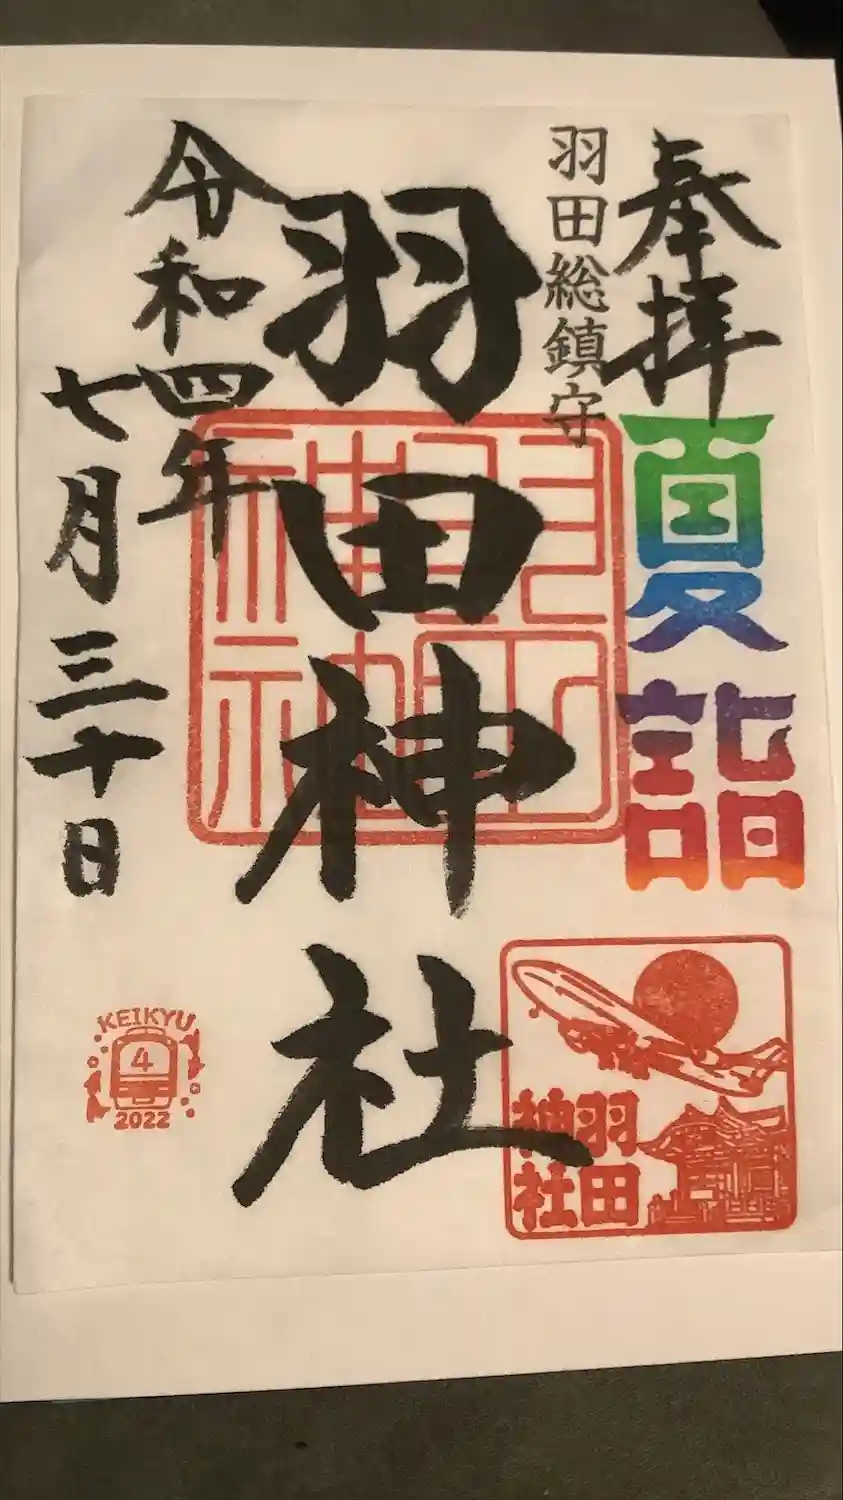 奉拝
夏詣
羽田総鎮守
羽田神社
令和四年
七月三十日
羽田
神社
羽田
神社
KEIKYU
4
2022